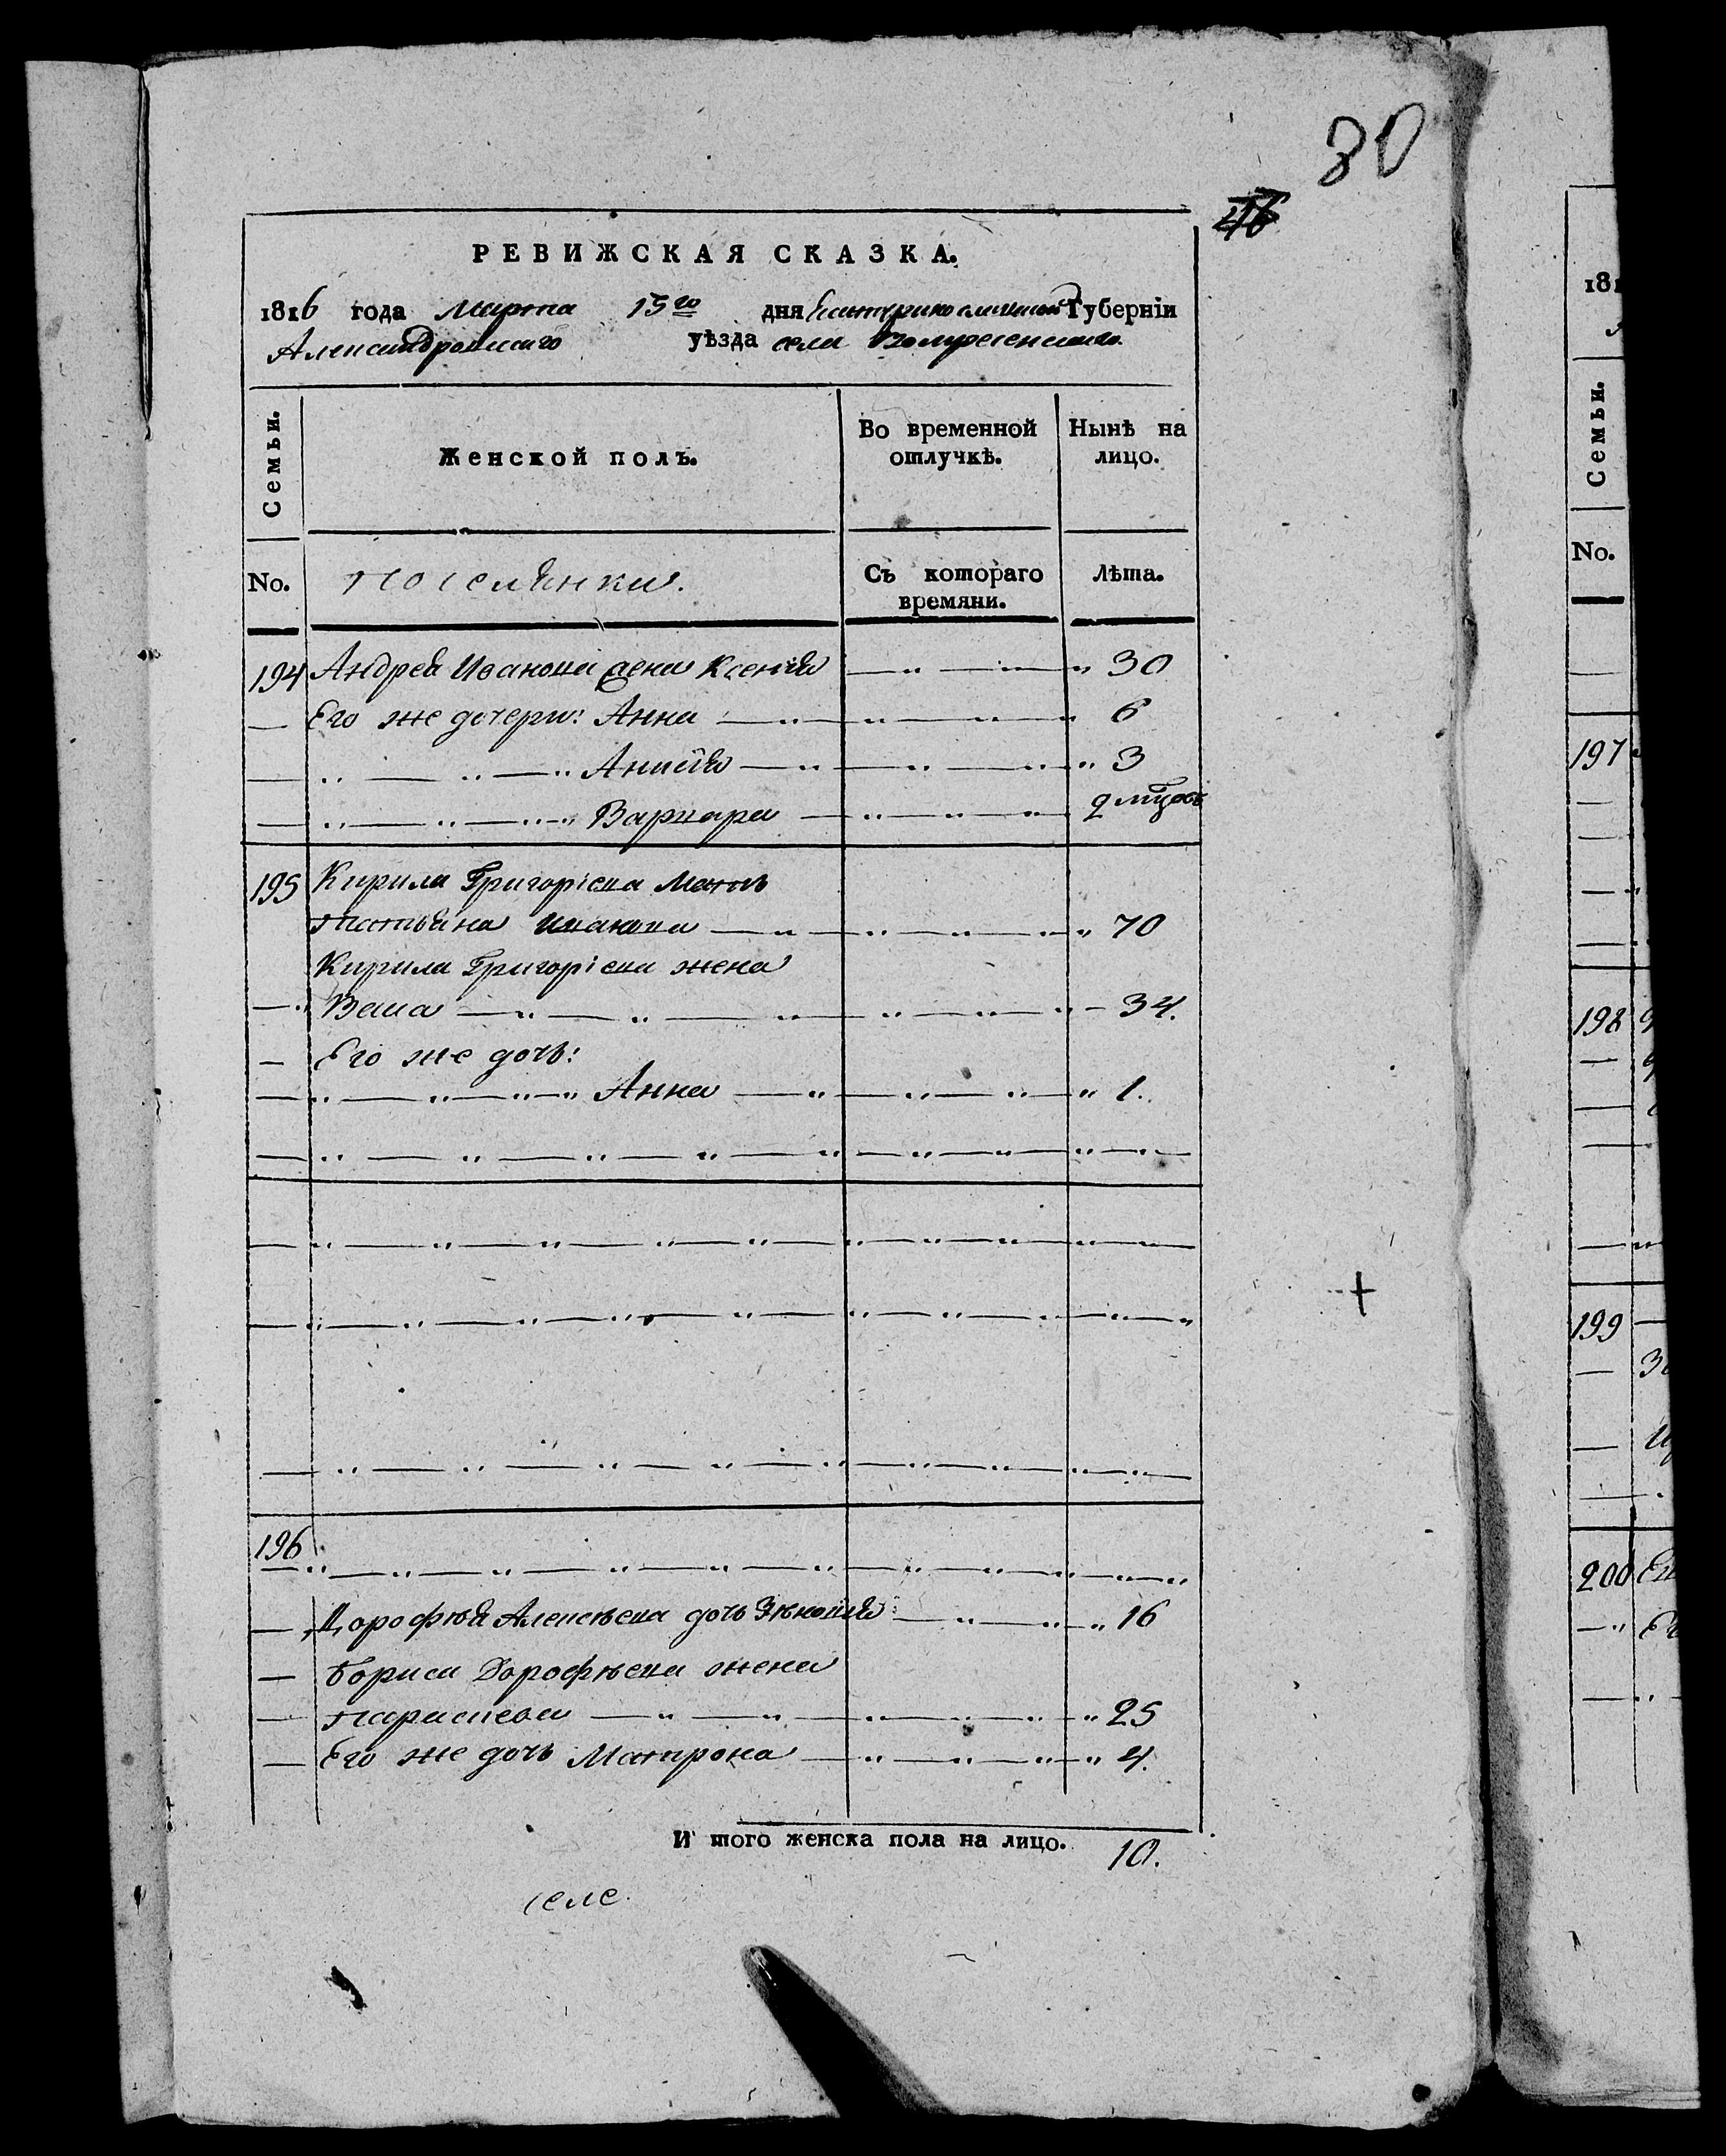 30
46
РЕВИЖСКАЯ СКАЗКА.
1816 года Марта 15го дня Екатеринославской Губерніи
Александровскаго уѣзда села Вознесенскаго
Семьи.
Женской полъ.
Во временной отлучкѣ.
Нынѣ на лицо.
No.
поселянки.
Съ котораго времяни.
Лѣта.
194 Андрея Иванова жена Ксенія 30
Его же дочери: Анна 6
Анисія 3
Варвара 2 мцовъ
195 Кирила Григоріева Мать
татьяна Иванова 70
Кирила Григоріева жена
Васа 34.
Его же дочь:
Анна 1.
196
Дорофѣя Алексѣева дочь Зѣновія 16
Бориса Дорофѣева жена
параскева 25
Его же дочь Матрона 4.
И того женска пола на лицо. 10.
селе
181
Семьи.
No.
197
198
199
200